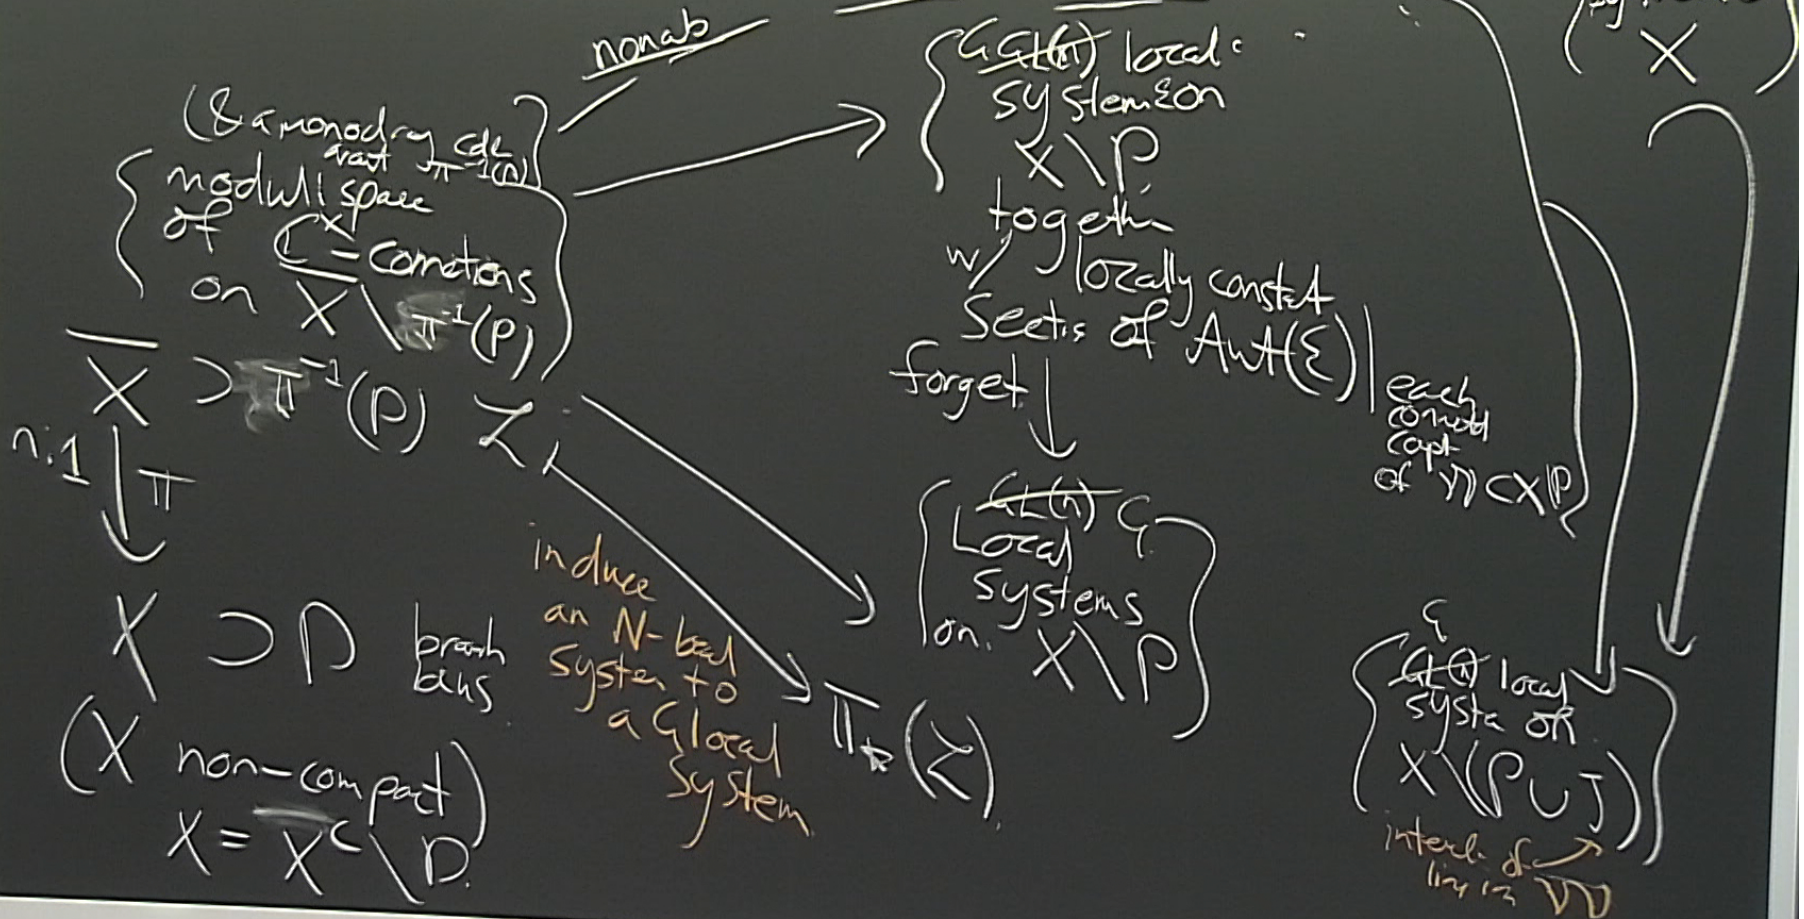 nonab
(& a monodromy cdn
arount π⁻¹(P)
moduli space
of ℂ^×-connections
on X̄ \ π⁻¹(P)
X̄ ⊃ π⁻¹(P) L
n:1 π
X ⊃ P branch
(X non-compact)
X = X̄^c \ D.
induce
an N-bad
system to
a G local
system
π_*(L).
G GL(n) local
system E on
X \ P
together
w/ locally constant
sectis of Aut(E) |
each
of W ⊂ X \ P
forget
GL(n) G
Local
systems
on X \ P
X
G
GL(n) local
systs on
X \ (P ∪ J)
of
in W